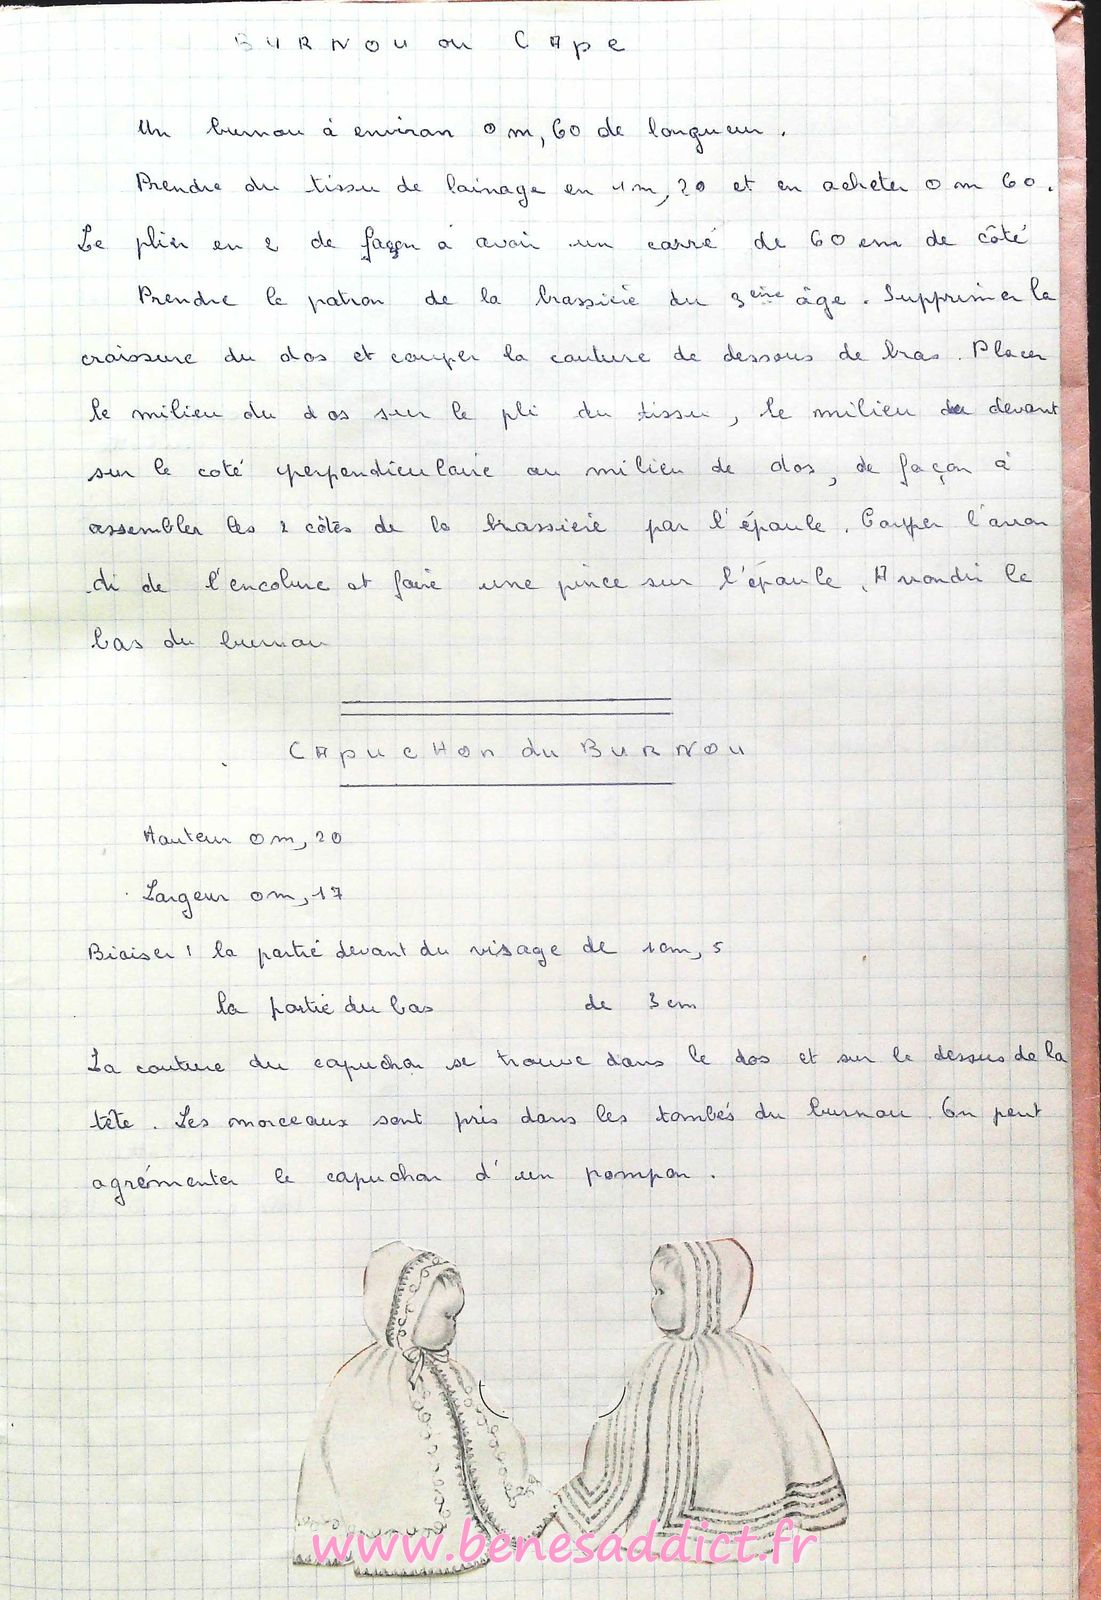 BURNOU ou CApe
Un burnou à environ 0m,60 de longueur.
Prendre du tissu de lainage en 1m,20 et en acheter 0m 60.
Le plier en 2 de façon à avoir un carré de 60 cm de côté
Prendre le patron de la brassière du 3eme âge. Supprimer la
croissure du dos et couper la couture de dessous de bras. Placer
le milieu du dos sur le pli du tissu, le milieu du devant
sur le coté perpendiculaire au milieu de dos, de façon à
assembler les 2 côtés de la brassière par l'épaule. Couper l'arron
di de l'encolure et faire une pince sur l'épaule. Arrondir le
bas du burnou
CApucHon du BURNOU
Hauteur 0m,20
Largeur 0m,17
Biaiser : la partie devant du visage de 1cm,5
la partie du bas de 3cm
La couture du capuchon se trouve dans le dos et sur le dessus de la
tête. Les morceaux sont pris dans les tombés du burnou. On peut
agrémenter le capuchon d'un pompon.
www.benesaddict.fr